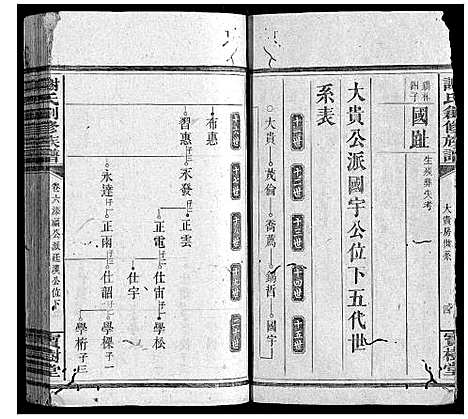 謝氏創修族譜
大貴房世系
寶樹堂
國趾
生歿葬失考
大貴公派國宇公位下五代世
系表
十一世
十二世
十三世
十四世
十五世
大貴
茂倫
喬薦
錫哲
國宇
十六世
十七世
十八世
十九世
二十世
布惠
習惠
永發
正雲
正電
仕宙
學松
仕宇
永達
正雨
仕韶
學樑子三
學桁子一
謝氏創修族譜
卷六添福公派廷漢公位下
寶樹堂